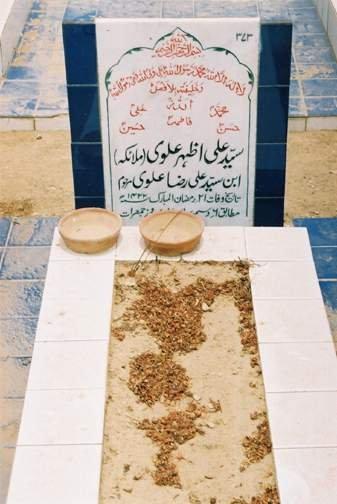 ۳۷۳
اللہ
بسم اللہ الرحمن الرحیم
لا الہ الا اللہ محمد رسول اللہ علی ولی اللہ وصی رسول اللہ
وخلیفتہ بلافصل
اللہ
محمدؐ علیؑ
فاطمہؑ
حسنؑ حسینؑ
سیّد علی اظہر علوی (ملائکہ)
ابن سیّد علی رضا علوی مرحوم
تاریخ وفات ۲۱ رمضان المبارک
مطابق